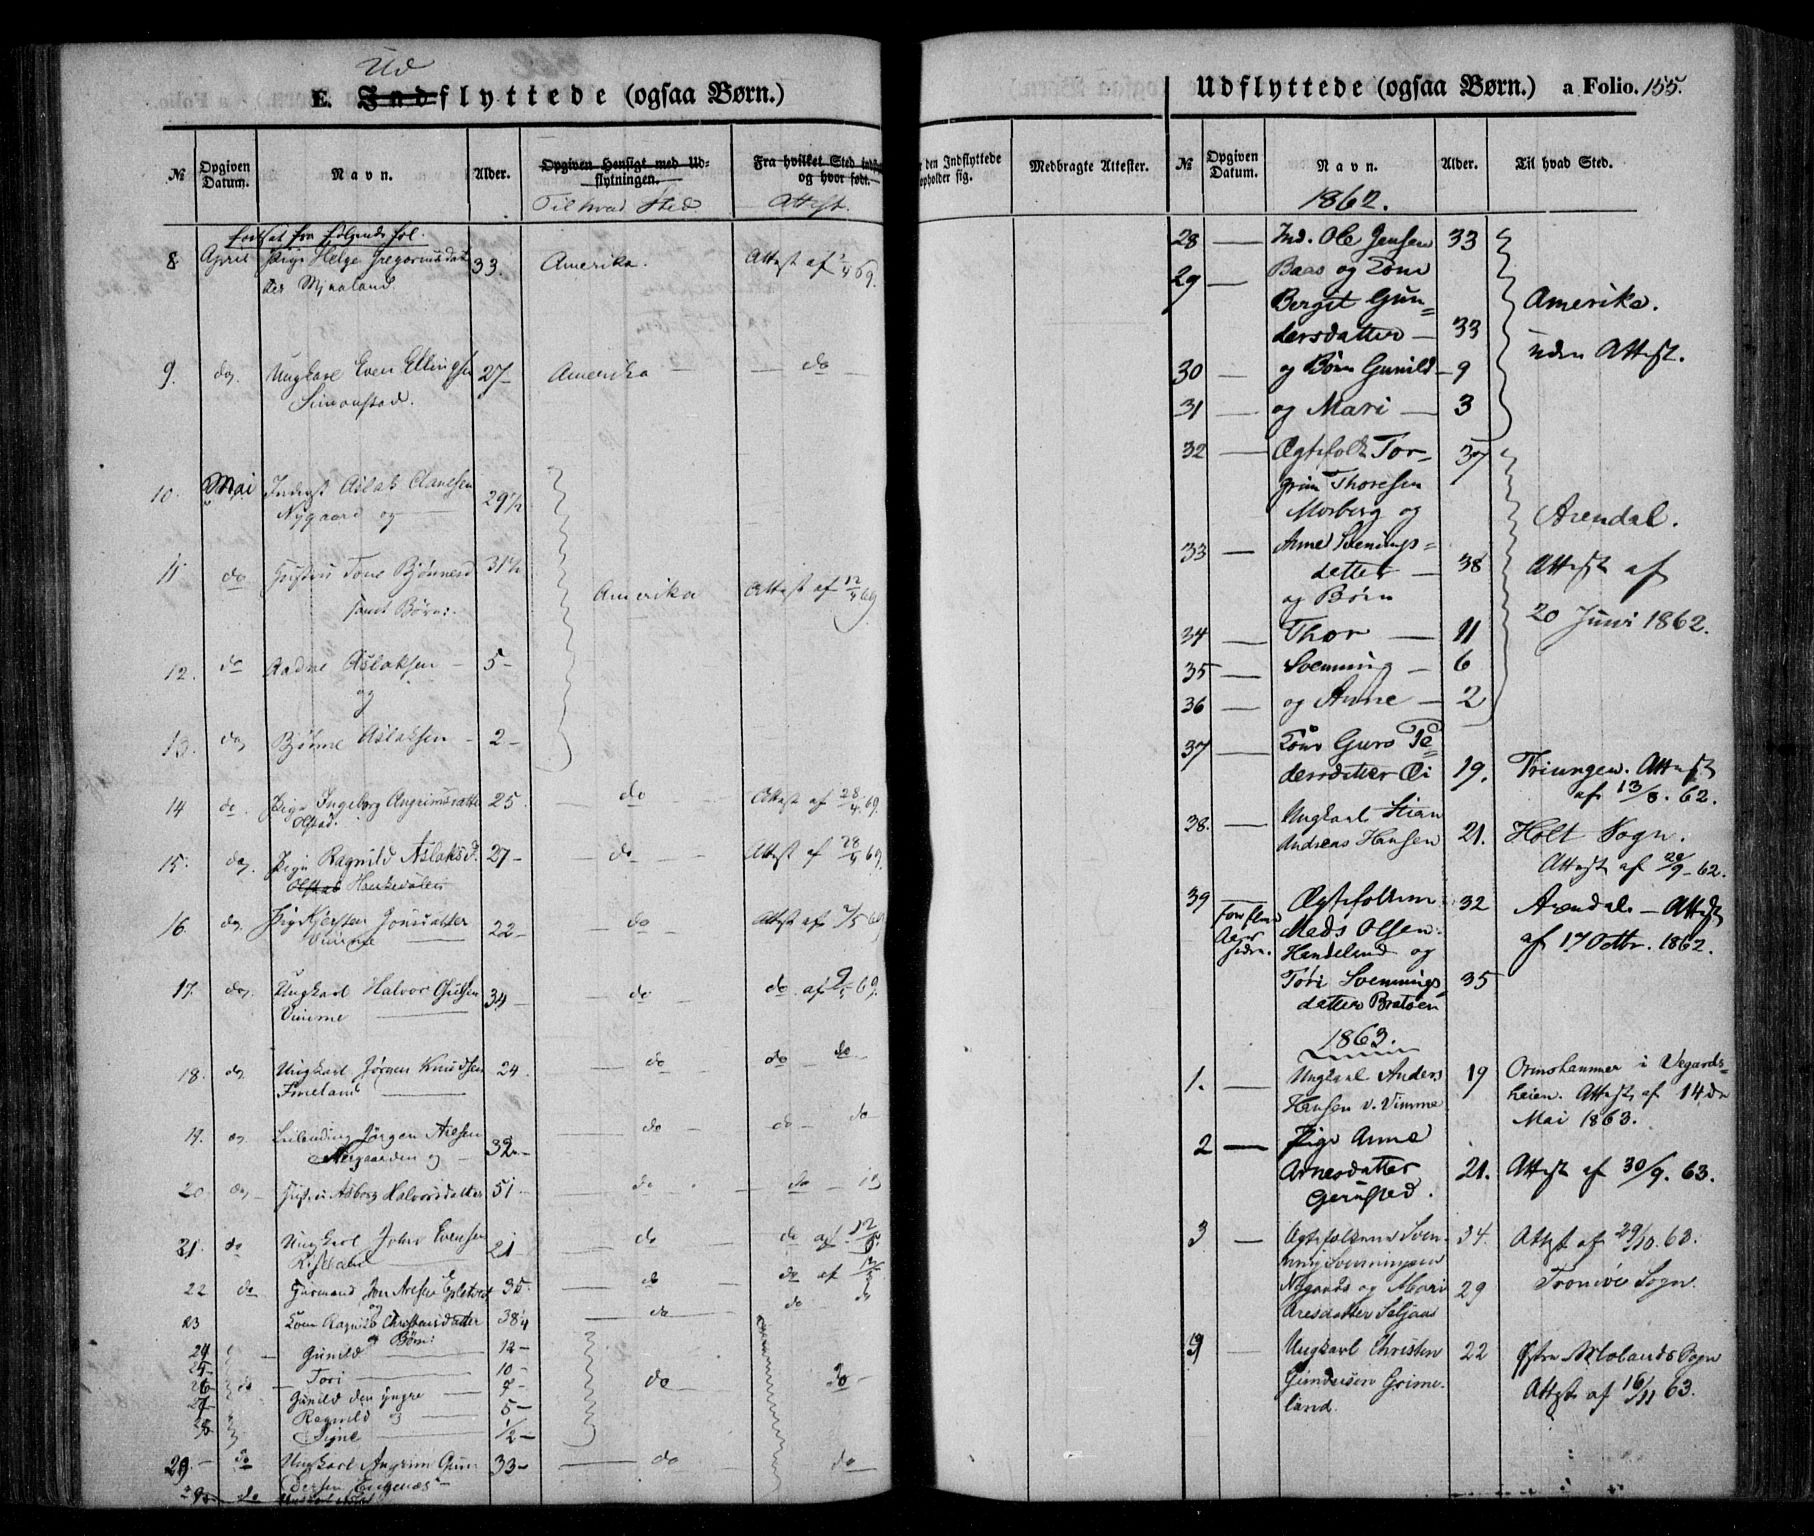 Ud
E. Indflyttede (ogsaa Børn.)
№
Opgiven Datum.
Navn.
Alder.
Opgiven Hensigt med Udflytningen.
Til hvad Sted
Fra hvilket Sted
og hvor født.
Attest.
fortsat fra følgende fol.
8. April Pige Helge Gregoriusdat 33 Amerika. Attest af 69.
ter Mjaaland.
9. do, Ungkarl Even Ellingsen 27 Amerika do
Simonstad.
10. Mai Inderst Aslak Clausen 29½
Nygaard og
11 do Hustru Tone Bjønnesd 31½ Amerika Attest af 12/4 69
samt Børn:
12. do Aadne Aslaksen 5
og
13. do, Bjønne Aslaksen 2
14 do. Pige Ingeborg Angrimsdatter 25. do Attest af 28/4 69.
Olstad.
15. do, Pige Ragnild Aslaksd. 27 do Attest af 28/4 69.
Olstad
16 do, Pige Kjersten Jonsdatter 22 do Attest af /5 69
Vimme
17. do, Ungkarl Halvor Gutsen 34 do do af 9/5 69.
Vimme
18. do, Ungkarl Jørgen Knudsen 24. do do do
19. do Leilending Jørgen Aresen 32 do do do
Nergaarden og
20 do Hustru Asborg Halvorsdatter 51 do do
21. do Ungkarl John Evensen 21 do do af 12/5
Riseland
22 do Gaarmand Jon Aresen 35 do do af
og
23 Kone Ragnild Christensdatter 38¼ do do do
og Børn:
24 Gunild 12
25 Tori 10
26 do Gunild den yngre 7 do do
27 Ragnild og 5
28 Signe ½
29 do Ungkarl Angrim Gun 33 do do
dersen Engenæs
29 do Ungkarl
Udflyttede (ogsaa Børn.) a Folio. 155.
den Indflyttede
opholder sig.
Medbragte Attester.
№
Opgiven Datum.
Navn.
Alder.
Til hvad Sted.
1862.
28 Ind. Ole Jensen 33
29 Baas og Kone
Bergit Gun=
dersdatter 33 Amerika.
30 og Børn Gunild 9 uden Attest.
31 og Mari 3
32 Ægtefolk Tor= 37
grim Thoresen
Morberg og Arendal.
33 Anne Svenings= Attest af
datter 38 20 Juni 1862.
og Børn
34 Thor 11
35 Svenning 6
36 og Anne 2
37 Kone Guro Pe=
dersdatter Øi 19. Triungen. Attest
af 13/8. 62.
38. Ungkarl Stian
Andreas Hansen 21. Holt Sogn.
Attest af 29/9 - 62.
39 Ægtefolkene 32 Arendal - Attest
Mads Olsen af 17 Octbr. 1862.
Handeland og
Tori Svennings= 35
datter Bratøen
1863.
1. Ungkarl Anders 19 Ormshammer i Vegards=
Hansen v. Vimme heien. Attest af 14de
Mai 1863.
2 Pige Anne
Arnesdatter 21. Attest af 30/9. 63.
Gerusted.
3 Ægtefolkene Sven- 34. Attest af 29/10. 63.
ning Svenningsen Tromöe Sogn.
Nygaards og Mari 29
Aresdatter Seljaas
Ungkarl Christen 22 Østre Molands Sogn
Gundersen Grime= Attest af 16/11 63.
land.